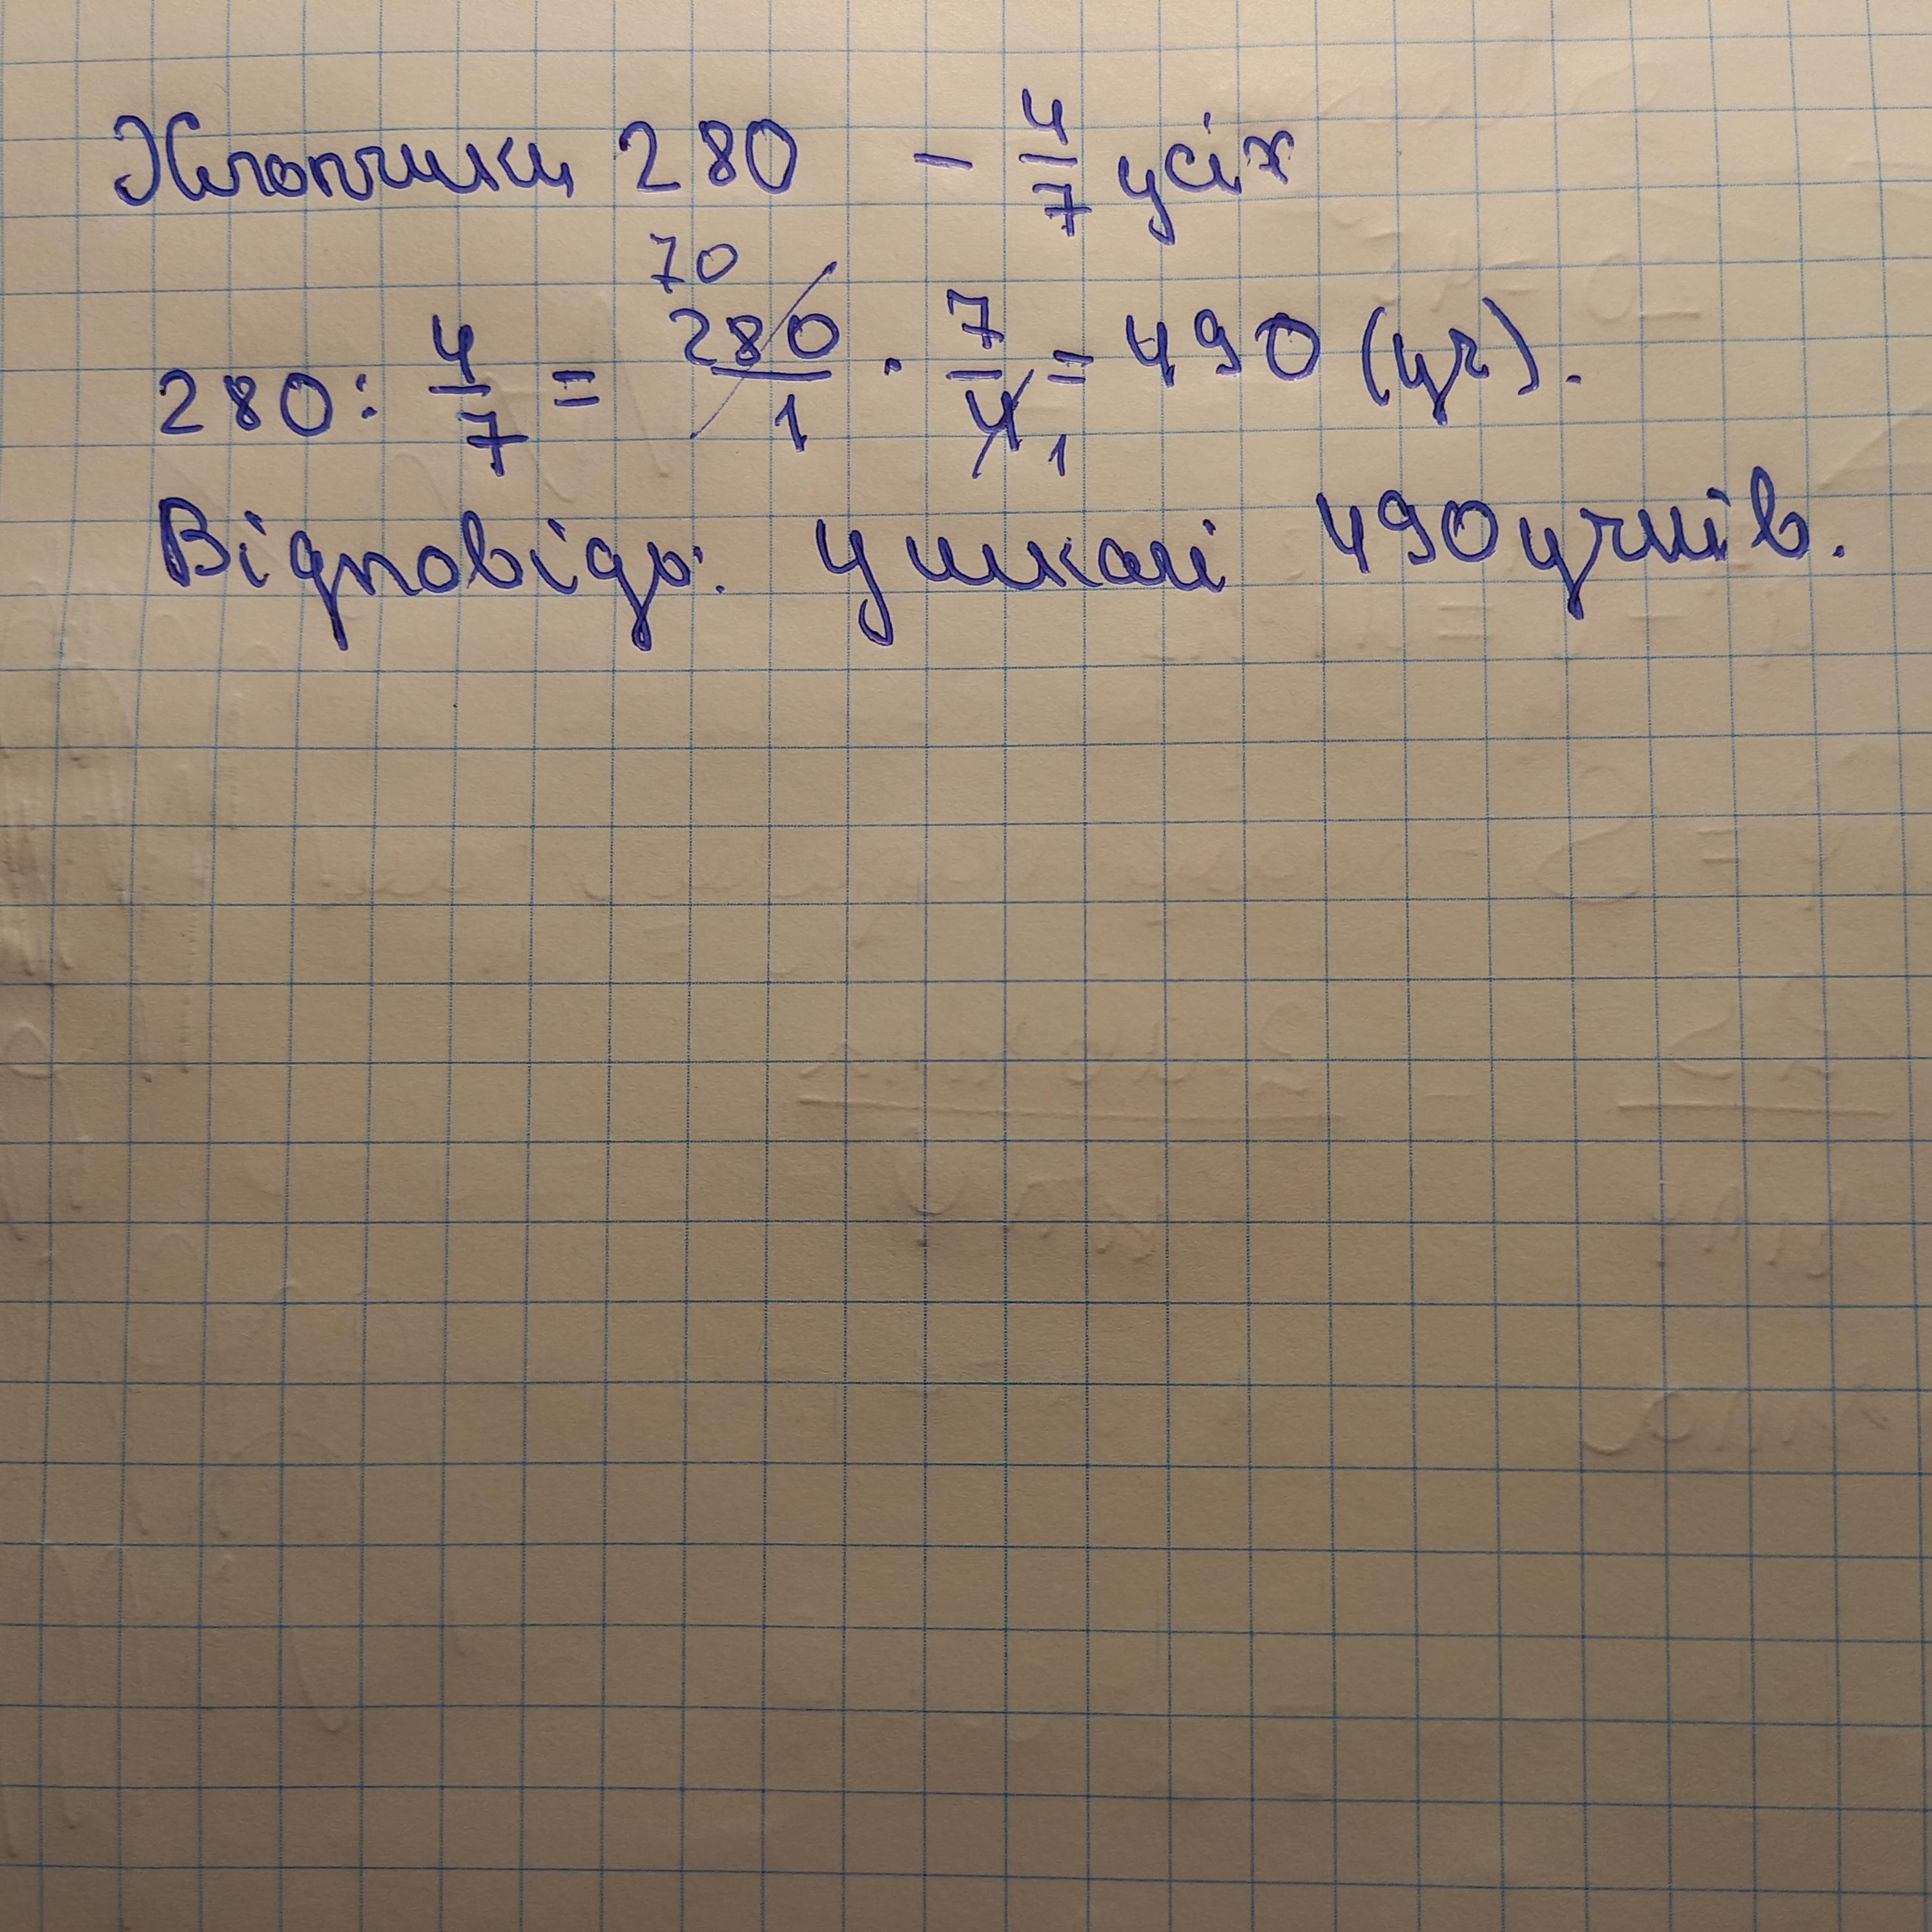 Хлопчики 280 - 4/7 усіх
70
280 : 4/7 = 280/1 · 7/4 = 490 (уч).
1
Відповідь: у школі 490 учнів.